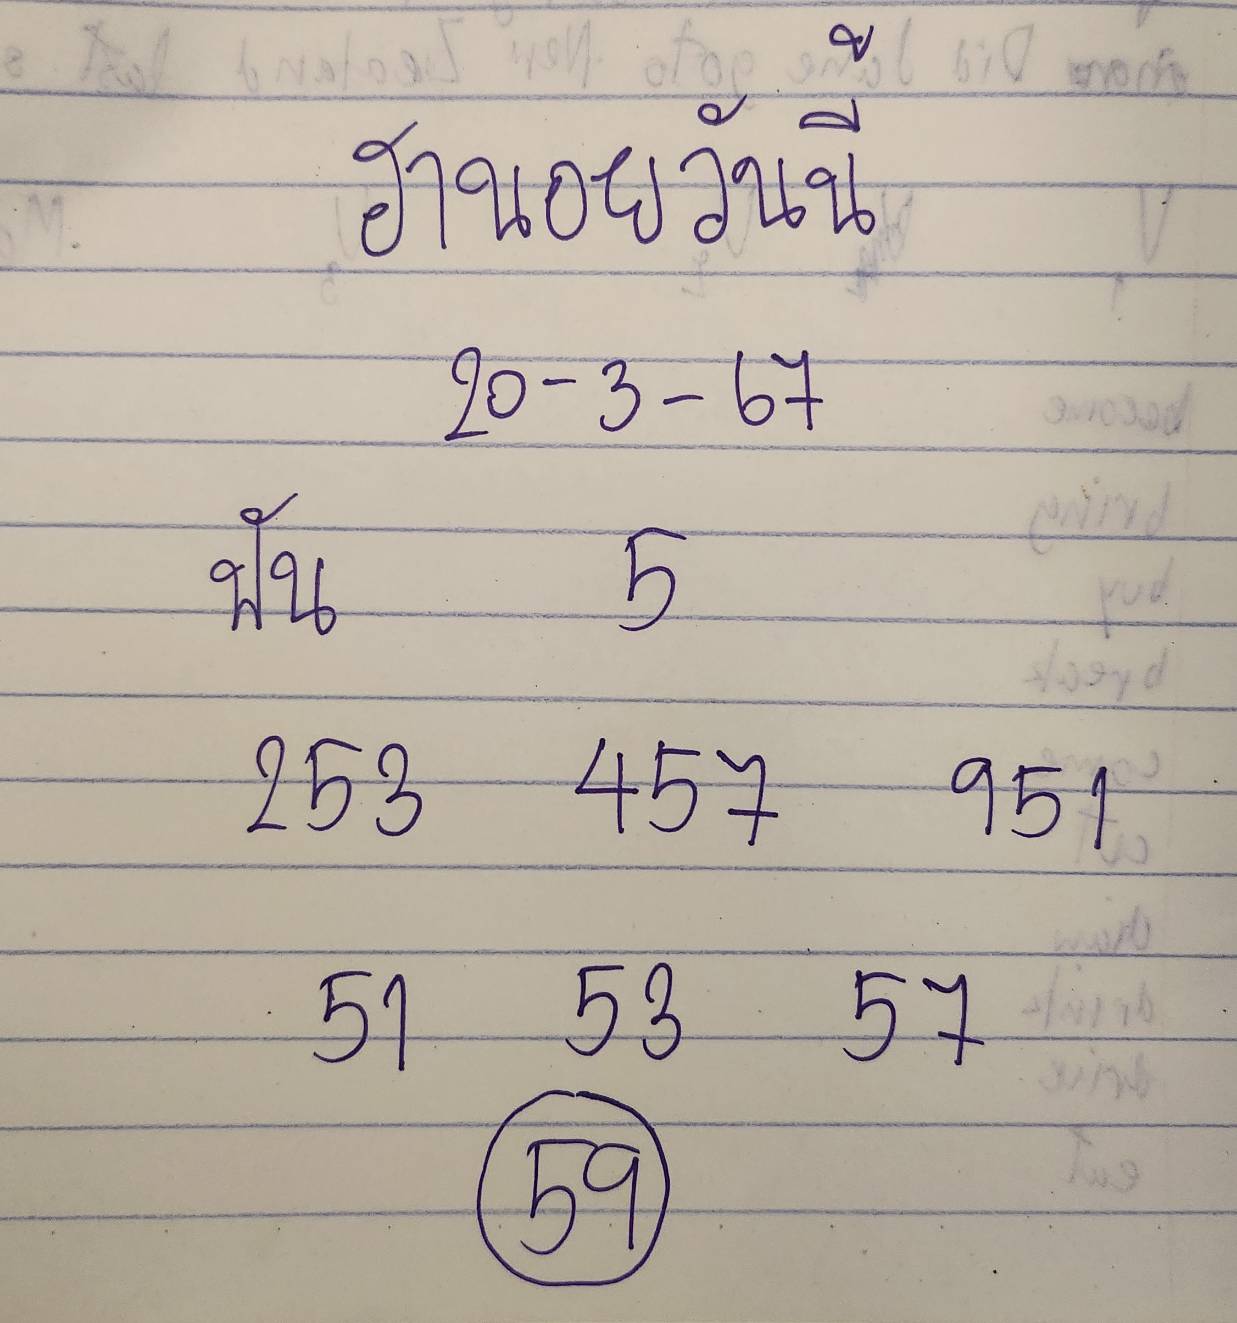 ฮานอยวันนี้
20-3-67
ฟัน 5
253 457 951
51 53 57
59